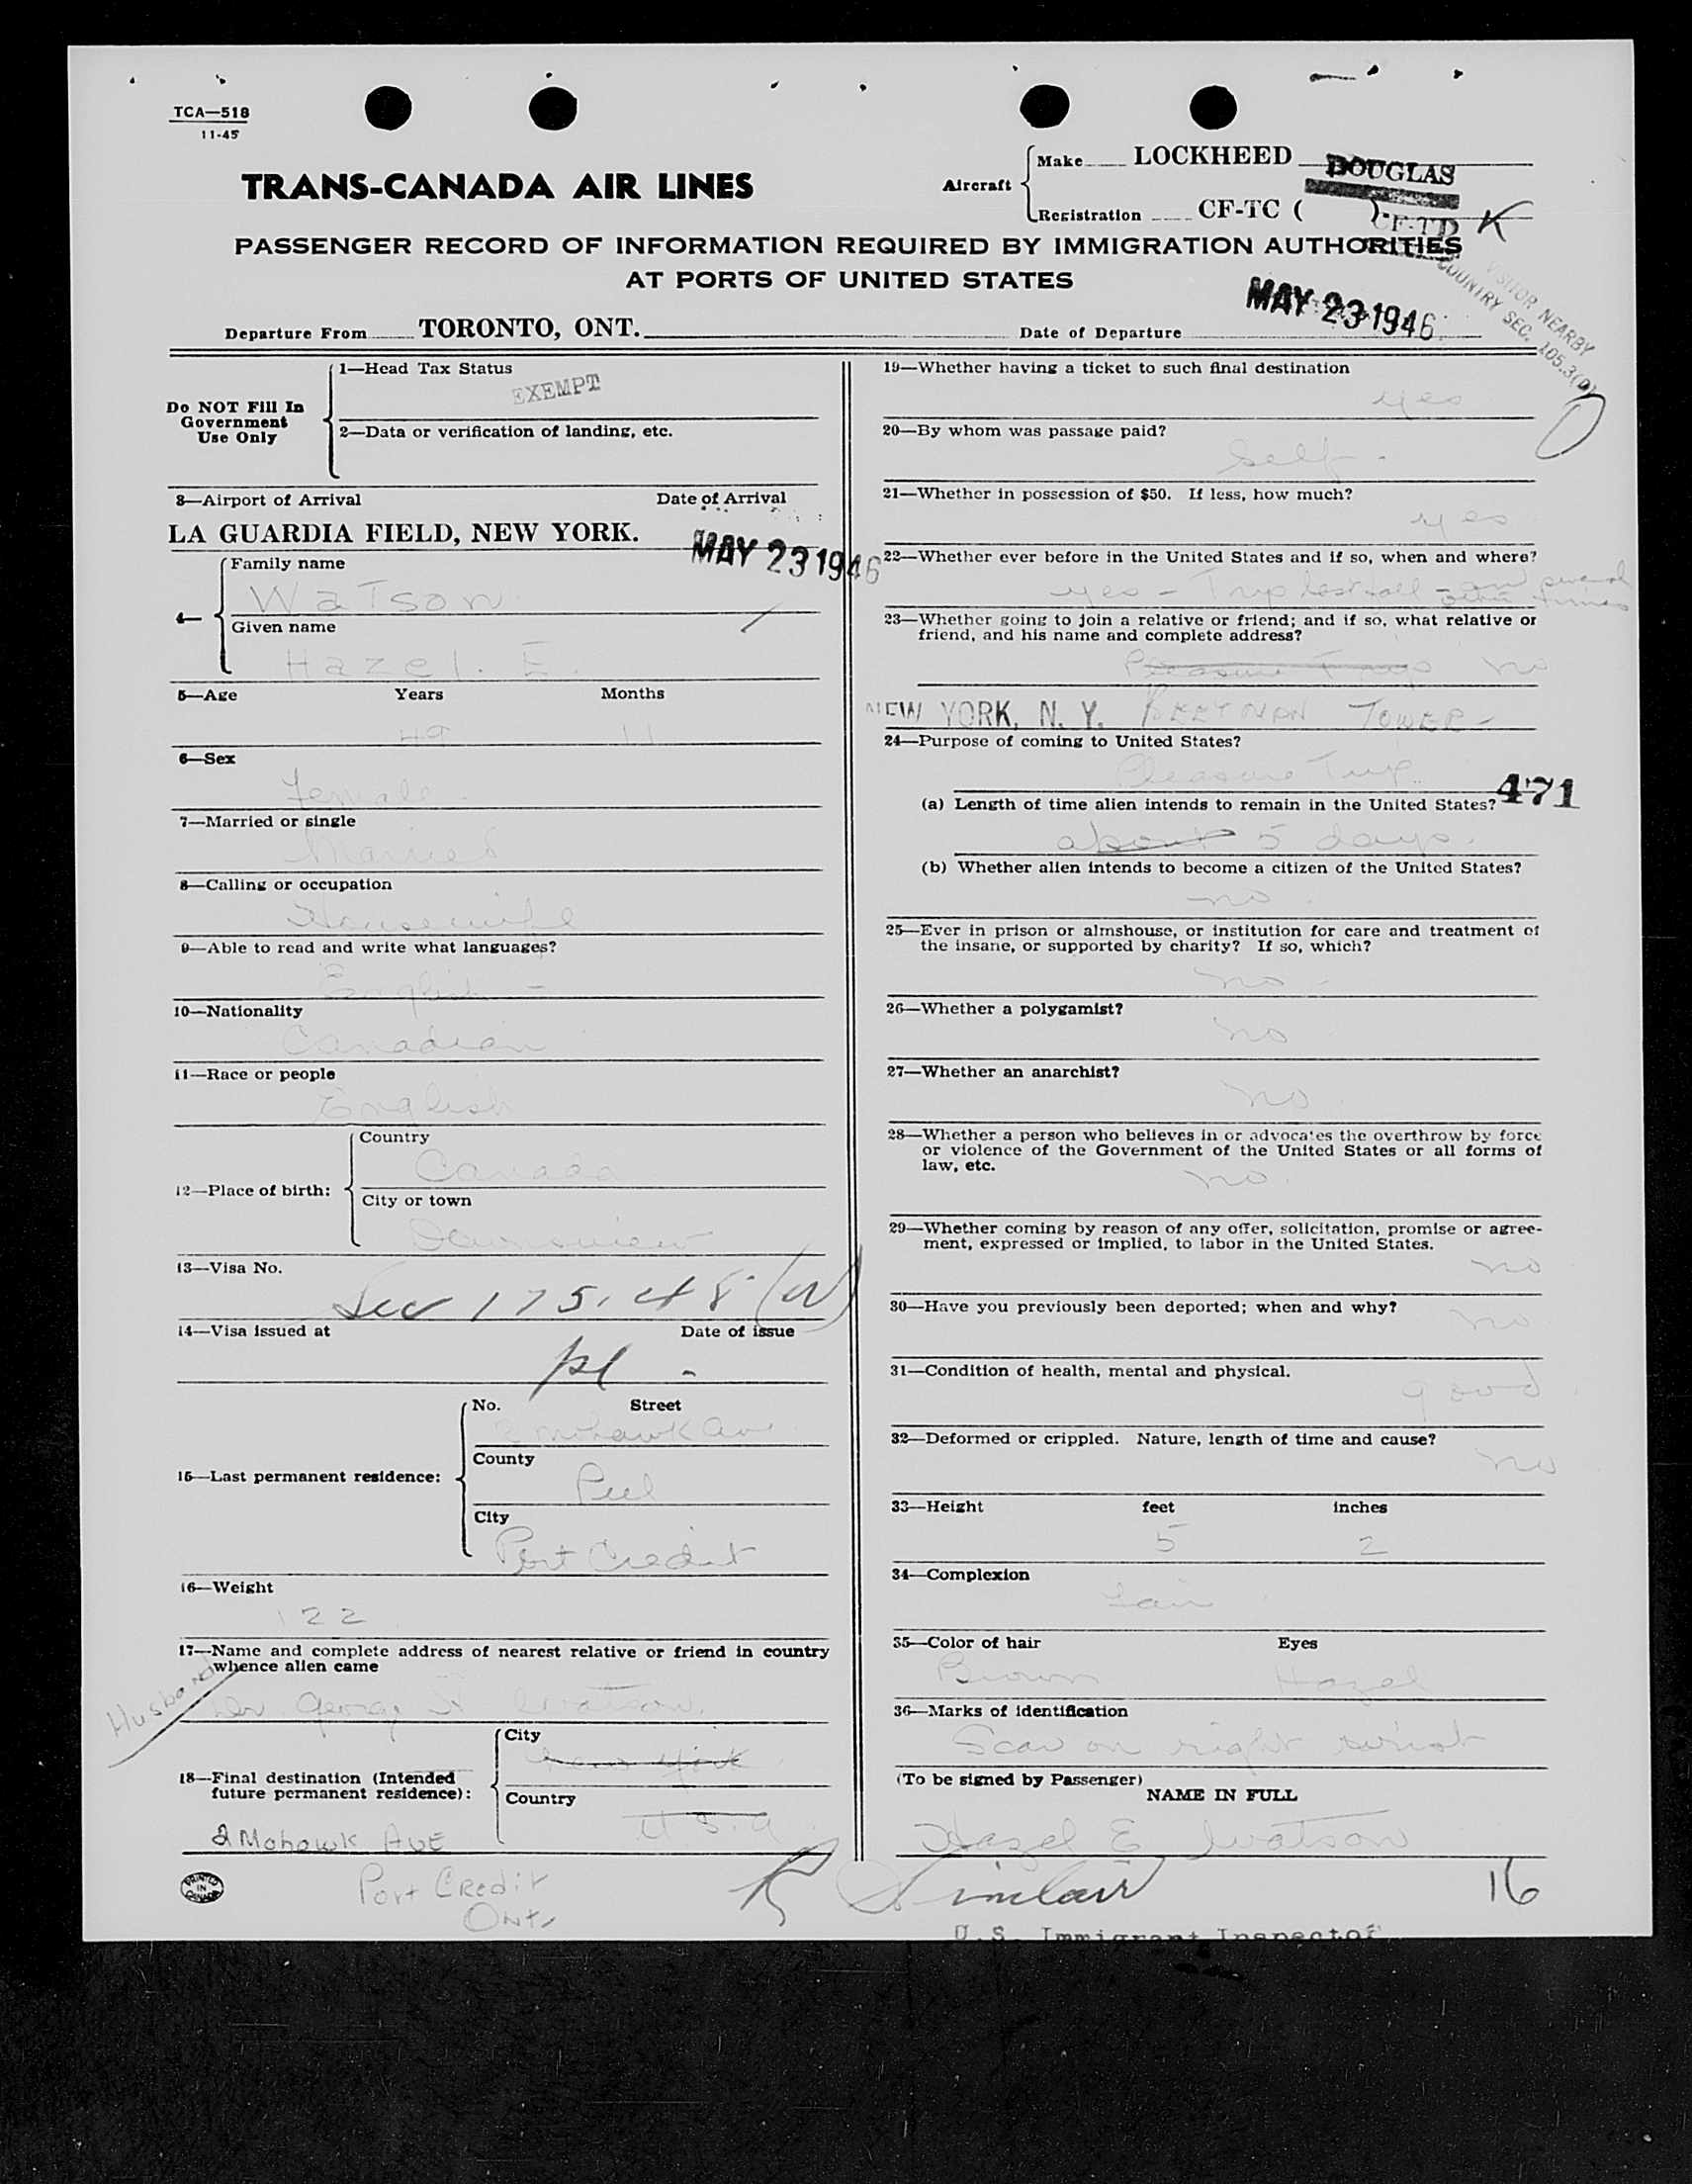 TCA—518
11-45
TRANS-CANADA AIR LINES
Aircraft
Make LOCKHEED DOUGLAS
Registration CF-TC ( )- CF-TD K
PASSENGER RECORD OF INFORMATION REQUIRED BY IMMIGRATION AUTHORITIES
AT PORTS OF UNITED STATES
VISITOR NEARBY
COUNTRY SEC. 105.3(D)
Departure From TORONTO, ONT. Date of Departure MAY 23 1946
Do NOT Fill In
Government
Use Only
1—Head Tax Status
EXEMPT
2—Data or verification of landing, etc.
3—Airport of Arrival Date of Arrival
LA GUARDIA FIELD, NEW YORK. MAY 23 1946
4— Family name
Watson
Given name
Hazel. E.
5—Age Years Months
49 11
6—Sex
Female
7—Married or single
Married
8—Calling or occupation
Housewife
9—Able to read and write what languages?
English -
10—Nationality
Canadian
11—Race or people
English
12—Place of birth:
Country
Canada
City or town
Downsview
13—Visa No.
Sec 175.48 (W)
14—Visa issued at Date of issue
pl -
15—Last permanent residence:
No. Street
2 Mohawk Ave
County
Peel
City
Port Credit
16—Weight
122
17—Name and complete address of nearest relative or friend in country
whence alien came
Husband
Dr George Watson.
18—Final destination (Intended
future permanent residence):
City
New York
Country
U.S.A
2 Mohawk Ave
Port Credit
Ont.
PRINTED
IN
CANADA
19—Whether having a ticket to such final destination
yes
20—By whom was passage paid?
Self -
21—Whether in possession of $50. If less, how much?
yes
22—Whether ever before in the United States and if so, when and where?
yes - Trip last fall - and several
other times
23—Whether going to join a relative or friend; and if so, what relative or
friend, and his name and complete address?
Pleasure Trip no
NEW YORK, N. Y. BEEKMAN TOWER -
24—Purpose of coming to United States?
Pleasure Trip.
471
(a) Length of time alien intends to remain in the United States?
about 5 days.
(b) Whether alien intends to become a citizen of the United States?
no.
25—Ever in prison or almshouse, or institution for care and treatment of
the insane, or supported by charity? If so, which?
no -
26—Whether a polygamist?
no
27—Whether an anarchist?
no
28—Whether a person who believes in or advocates the overthrow by force
or violence of the Government of the United States or all forms of
law, etc.
no.
29—Whether coming by reason of any offer, solicitation, promise or agree-
ment, expressed or implied, to labor in the United States.
no
30—Have you previously been deported; when and why?
no
31—Condition of health, mental and physical.
good
32—Deformed or crippled. Nature, length of time and cause?
no
33—Height feet inches
5 2
34—Complexion
Fair
35—Color of hair Eyes
Brown Hazel
36—Marks of identification
Scar on right wrist
(To be signed by Passenger)
NAME IN FULL
Hazel E Watson
R Sinclair 16
U.S. Immigrant Inspector